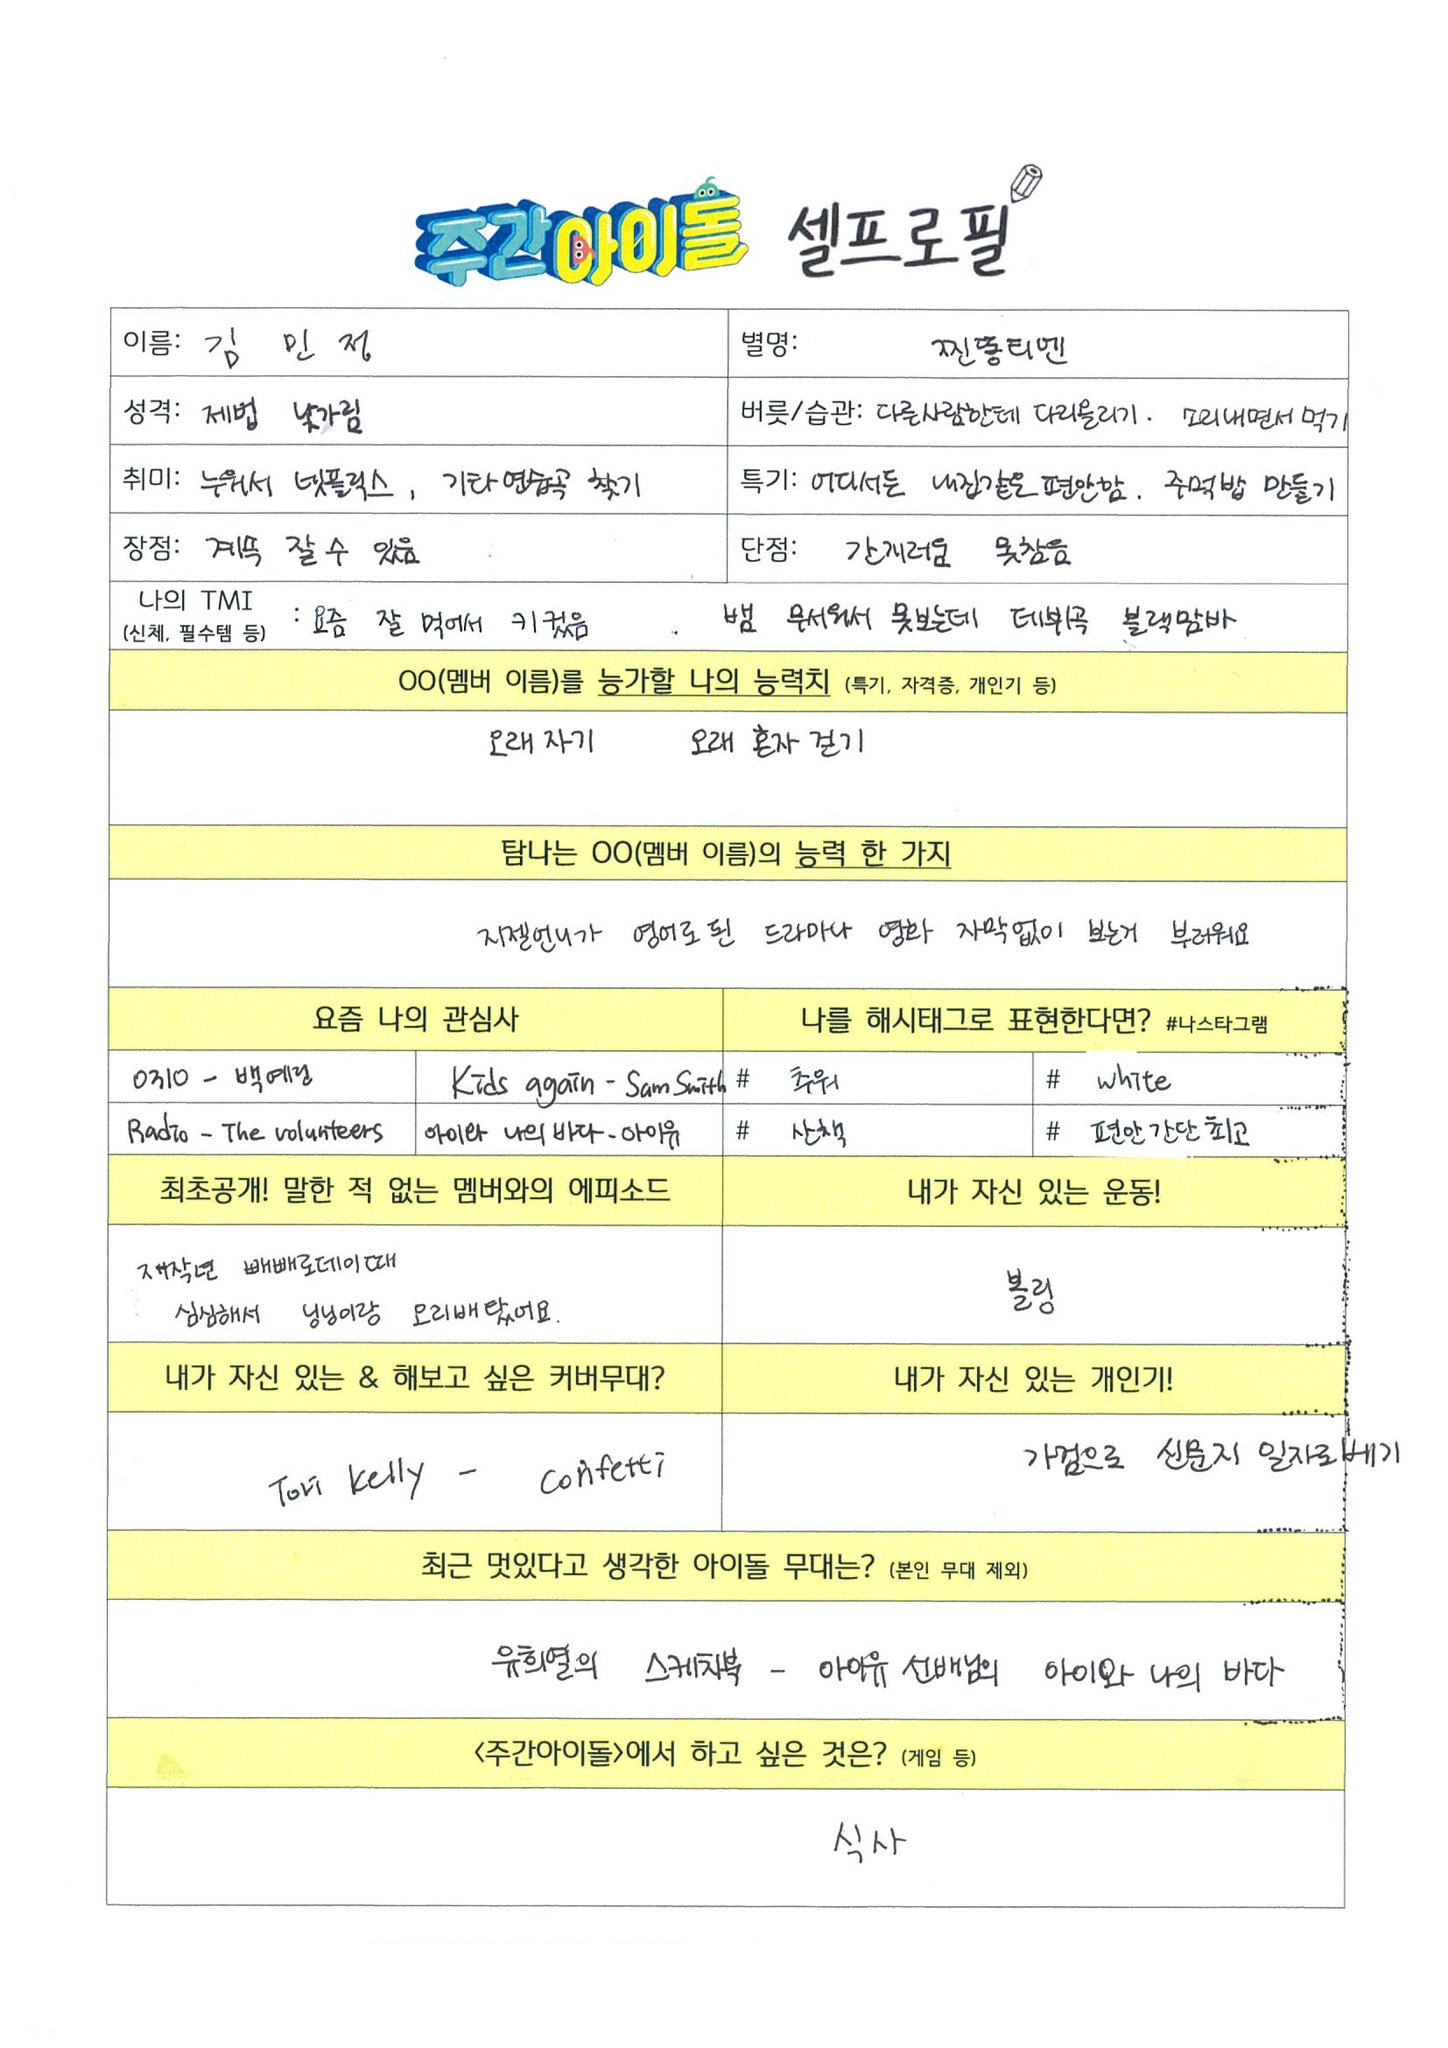 주간아이돌 셀프로필
이름: 김 민 정
별명: 찐똥티멘
성격: 제법 낯가림
버릇/습관: 다른사람한테 다리올리기. 소리내면서 먹기
취미: 누워서 넷플릭스, 기타연습곡 찾기
특기: 어디서든 내집같은 편안함. 주먹밥 만들기
장점: 계속 잘 수 있음
단점: 간지러움 못참음
나의 TMI
(신체, 필수템 등)
: 요즘 잘 먹어서 키컸음 . 뱀 무서워서 못보는데 데뷔곡 블랙맘바
OO(멤버 이름)를 능가할 나의 능력치 (특기, 자격증, 개인기 등)
오래 자기 오래 혼자 걷기
탐나는 OO(멤버 이름)의 능력 한 가지
지젤언니가 영어로 된 드라마나 영화 자막없이 보는거 부러워요
요즘 나의 관심사
나를 해시태그로 표현한다면? #나스타그램
0310 - 백예린
Kids again - Sam Smith
# 추위
# white
Radio - The volunteers
아이와 나의 바다 - 아이유
# 산책
# 편안간단최고
최초공개! 말한 적 없는 멤버와의 에피소드
내가 자신 있는 운동!
재작년 빼빼로데이때
심심해서 닝닝이랑 오리배탔어요.
볼링
내가 자신 있는 & 해보고 싶은 커버무대?
내가 자신 있는 개인기!
Tori Kelly - confetti
가검으로 신문지 일자로베기
최근 멋있다고 생각한 아이돌 무대는? (본인 무대 제외)
유희열의 스케치북 - 아이유 선배님의 아이와 나의 바다
<주간아이돌>에서 하고 싶은 것은? (게임 등)
식사